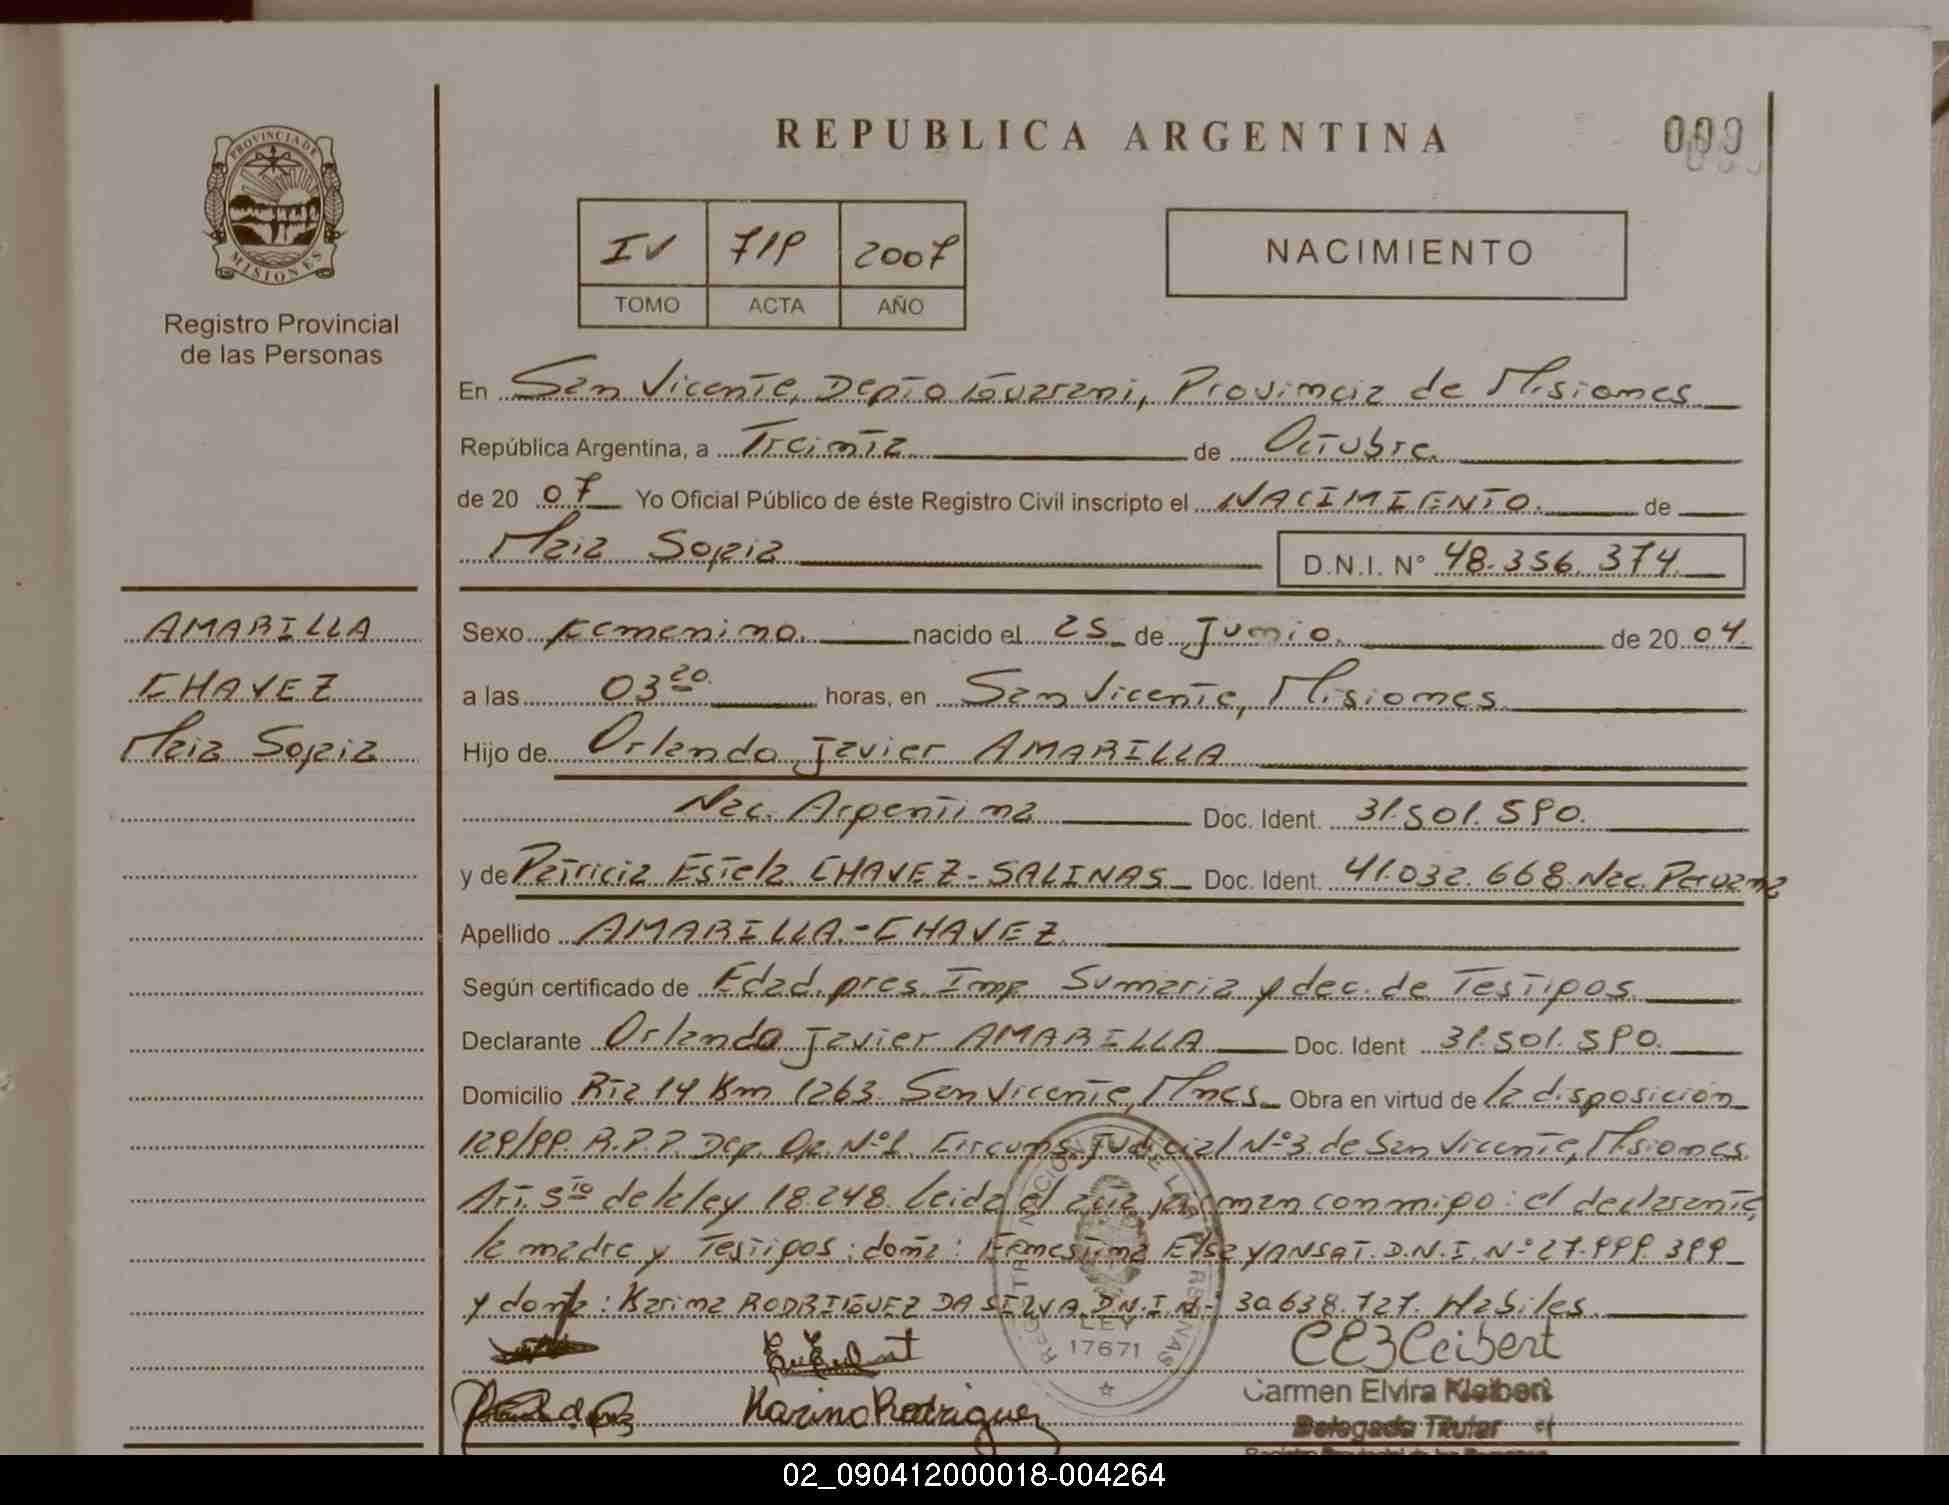 REPUBLICA ARGENTINA
009
PROVINCIA DE
MISIONES
Registro Provincial
de las Personas
IV 719 2007
TOMO ACTA AÑO
NACIMIENTO
En San Vicente, Depto Guarani, Provincia de Misiones
República Argentina, a Treinta de Octubre
de 20 07 Yo Oficial Público de éste Registro Civil inscripto el NACIMIENTO de
Maia Sofia
D.N.I. N° 48.356.374
AMARILLA
CHAVEZ
Maia Sofia
Sexo Femenino. nacido el 25 de Junio. de 20 04
a las 03 20 horas, en San Vicente, Misiones
Hijo de Orlando Javier AMARILLA
Nac. Argentina Doc. Ident. 31.501.590.
y de Patricia Estela CHAVEZ-SALINAS Doc. Ident. 41.032.668 Nac. Peruana
Apellido AMARILLA-CHAVEZ
Según certificado de Edad, pres. Imf. Sumaria y dec. de Testigos
Declarante Orlando Javier AMARILLA Doc. Ident 31.501.590.
Domicilio Rta 14 Km 1263. San Vicente, Mnes. Obra en virtud de la disposición
129/99. R.P.P. Dep. Of. Nº1. Circuns. Judicial Nº3 de San Vicente, Misiones.
Art. 5to de la ley 18.248. Leida el acta firman conmigo: el declarante,
la madre y Testigos: doña: Elsa YANSAT. D.N.I. Nº 27.999.399
y doña: Karina RODRIGUEZ DA SILVA. D.N.I. Nº 30.638.727. Habiles.
REGISTRO NACIONAL DE LAS PERSONAS
LEY
17671
Karina Rodriguez
Carmen Elvira Kleibert
Delegada Titular
02_090412000018-004264